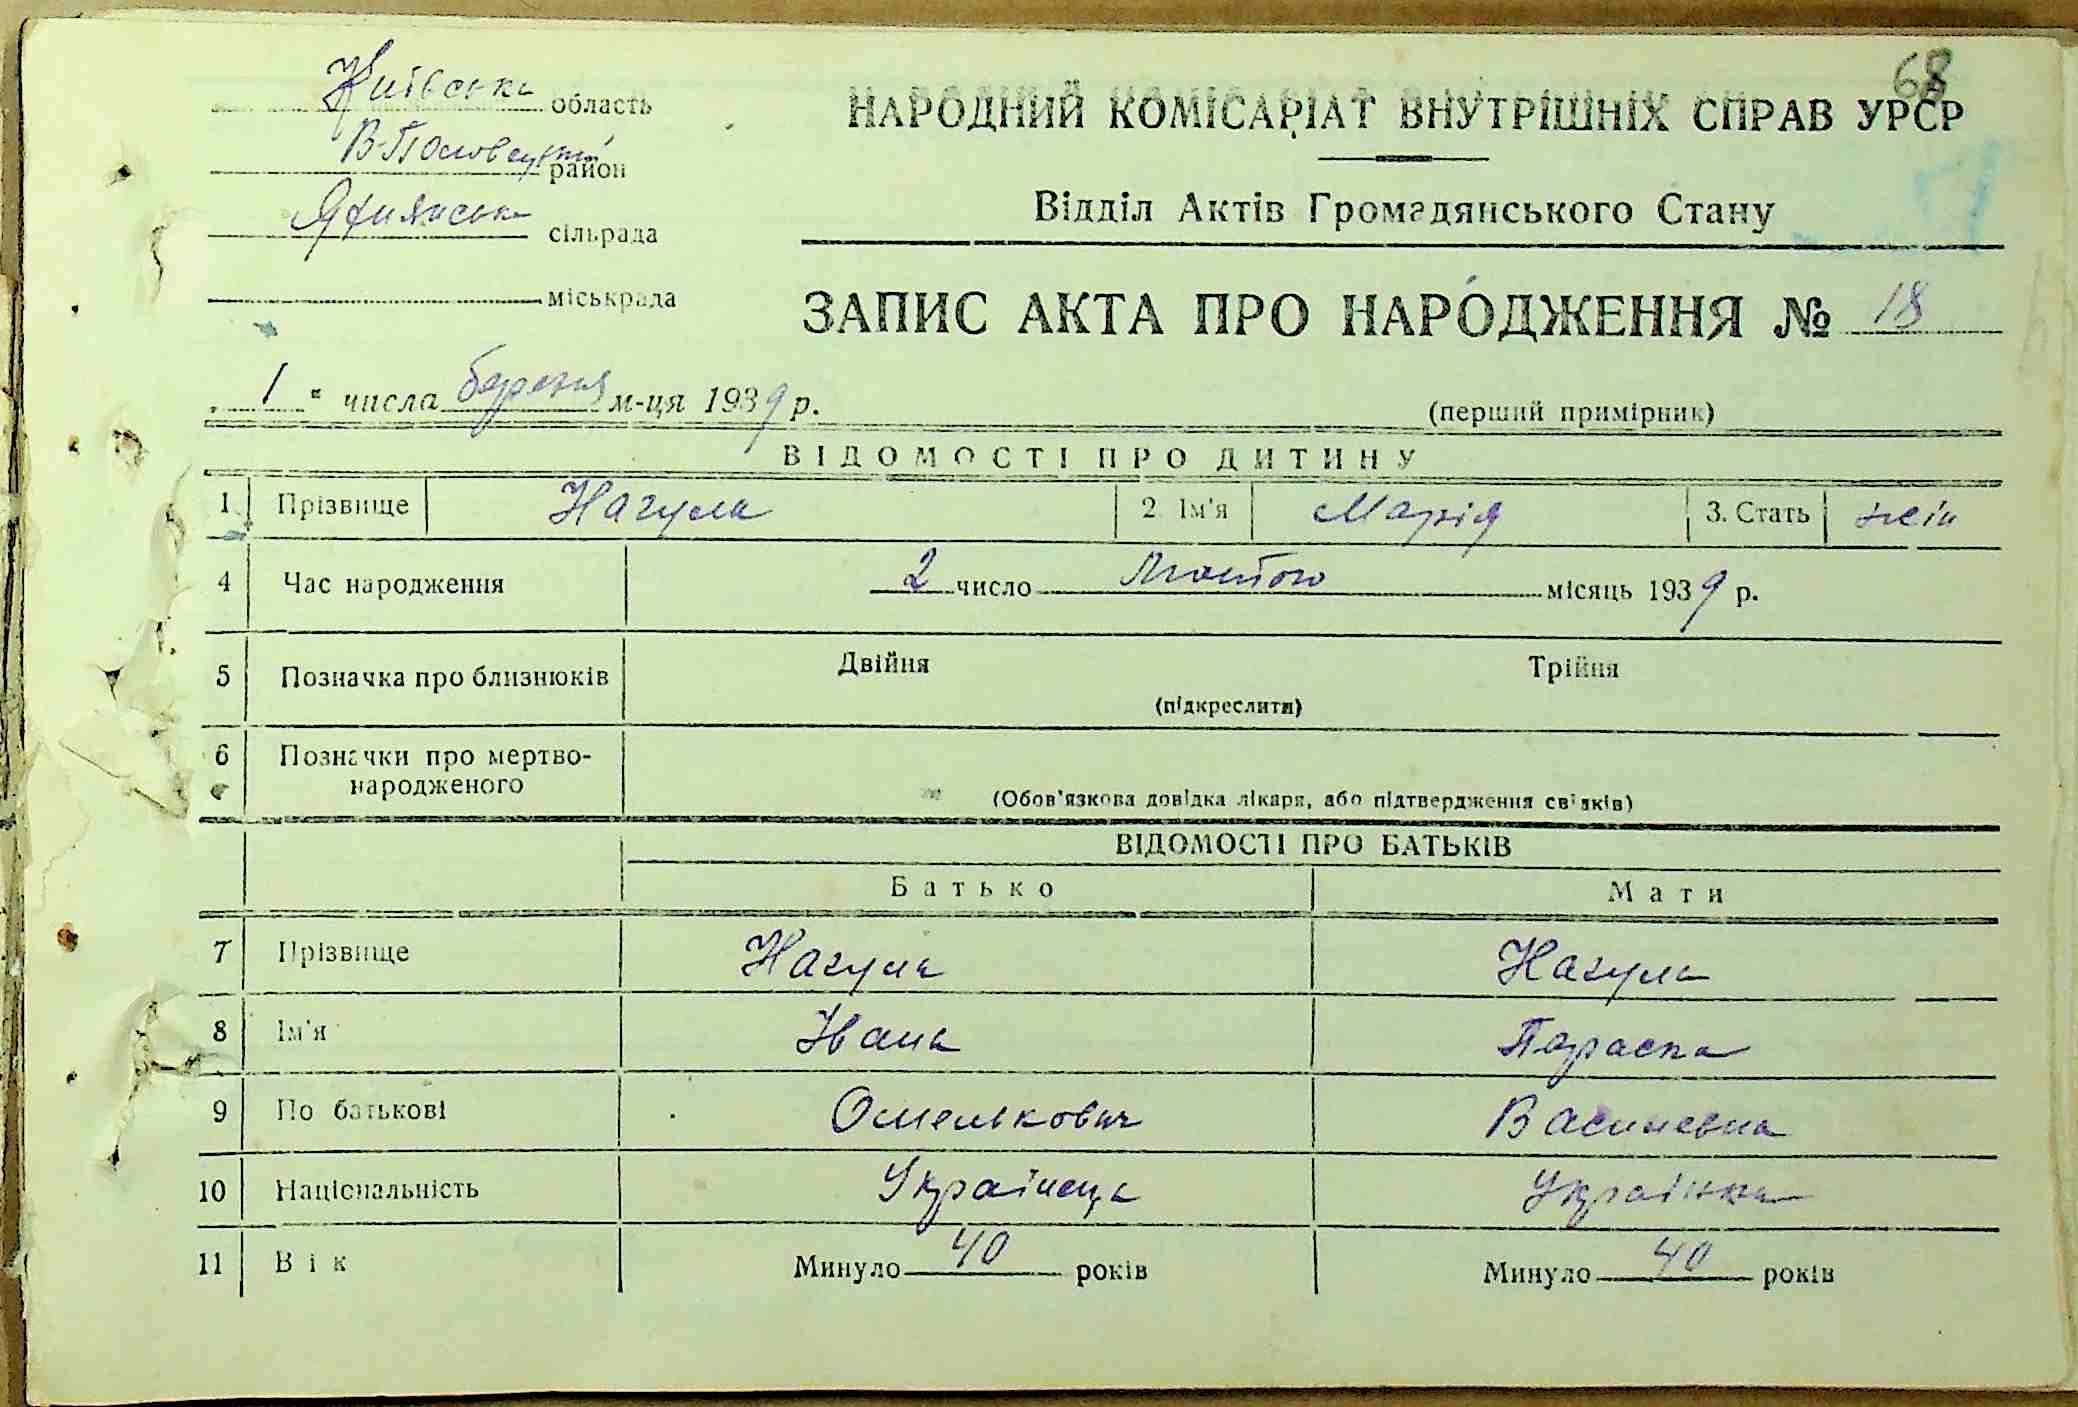 68
Київська область
В-Половецький район
Яхнянська сільрада
міськрада
НАРОДНИЙ КОМІСАРІАТ ВНУТРІШНІХ СПРАВ УРСР
Відділ Актів Громадянського Стану
ЗАПИС АКТА ПРО НАРОДЖЕННЯ № 18
„ 1 “ числа березня м-ця 1939 р.
(перший примірник)
ВІДОМОСТІ ПРО ДИТИНУ
1 Прізвище Нагула 2 Ім'я Марія 3. Стать жін
4 Час народження 2 число Лютого місяць 1939 р.
5 Позначка про близнюків Двійня Трійня
(підкреслити)
6 Позначки про мертво-
народженого
(Обов'язкова довідка лікаря, або підтвердження свідків)
ВІДОМОСТІ ПРО БАТЬКІВ
Батько Мати
7 Прізвище Нагула Нагула
8 Ім'я Івана Параска
9 По батькові Омелькович Василевна
10 Національність Українець Українка
11 Вік Минуло 40 років Минуло 40 років